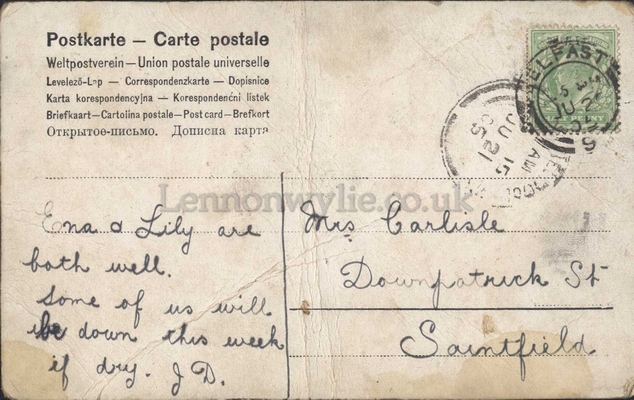 Postkarte — Carte postale
Weltpostverein — Union postale universelle
Levelező-Lap — Correspondenzkarte — Dopisnice
Karta korespondencyjna — Korespondenční listek
Briefkaart — Cartolina postale — Post card — Brefkort
Открытое-письмо. Дописна карта
BELFAST
PENNY
JU 21
05
Lennonwylie.co.uk
Ena & Lily are
both well.
Some of us will
be down this week
if dry. J.D.
Mrs Carlisle
Downpatrick St
Saintfield